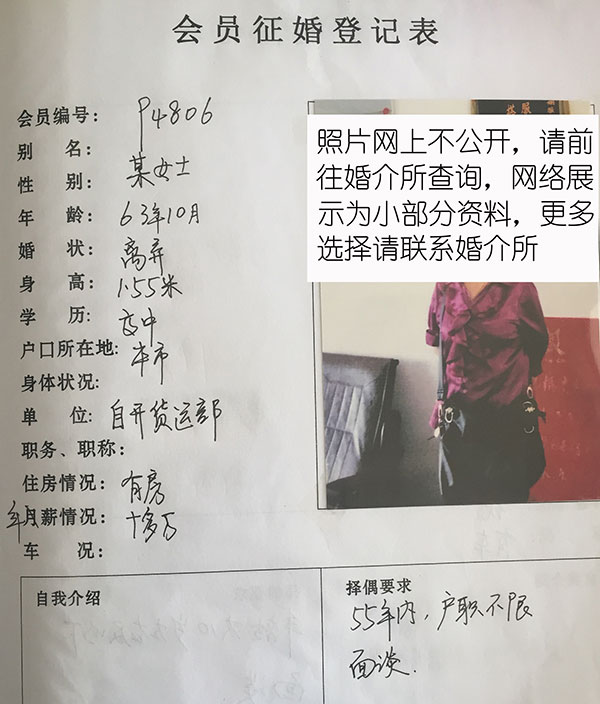 会员征婚登记表
会员编号: P4806
别 名:
性 别: 某女士
年 龄: 63年10月
婚 状: 离弃
身 高: 1.55米
学 历: 高中
户口所在地: 本市
身体状况:
单 位: 自开货运部
职务、职称:
住房情况: 有房
年月薪情况: 十多万
车 况:
照片网上不公开，请前
往婚介所查询，网络展
示为小部分资料，更多
选择请联系婚介所
自我介绍
择偶要求
55年内，户职不限
面谈.